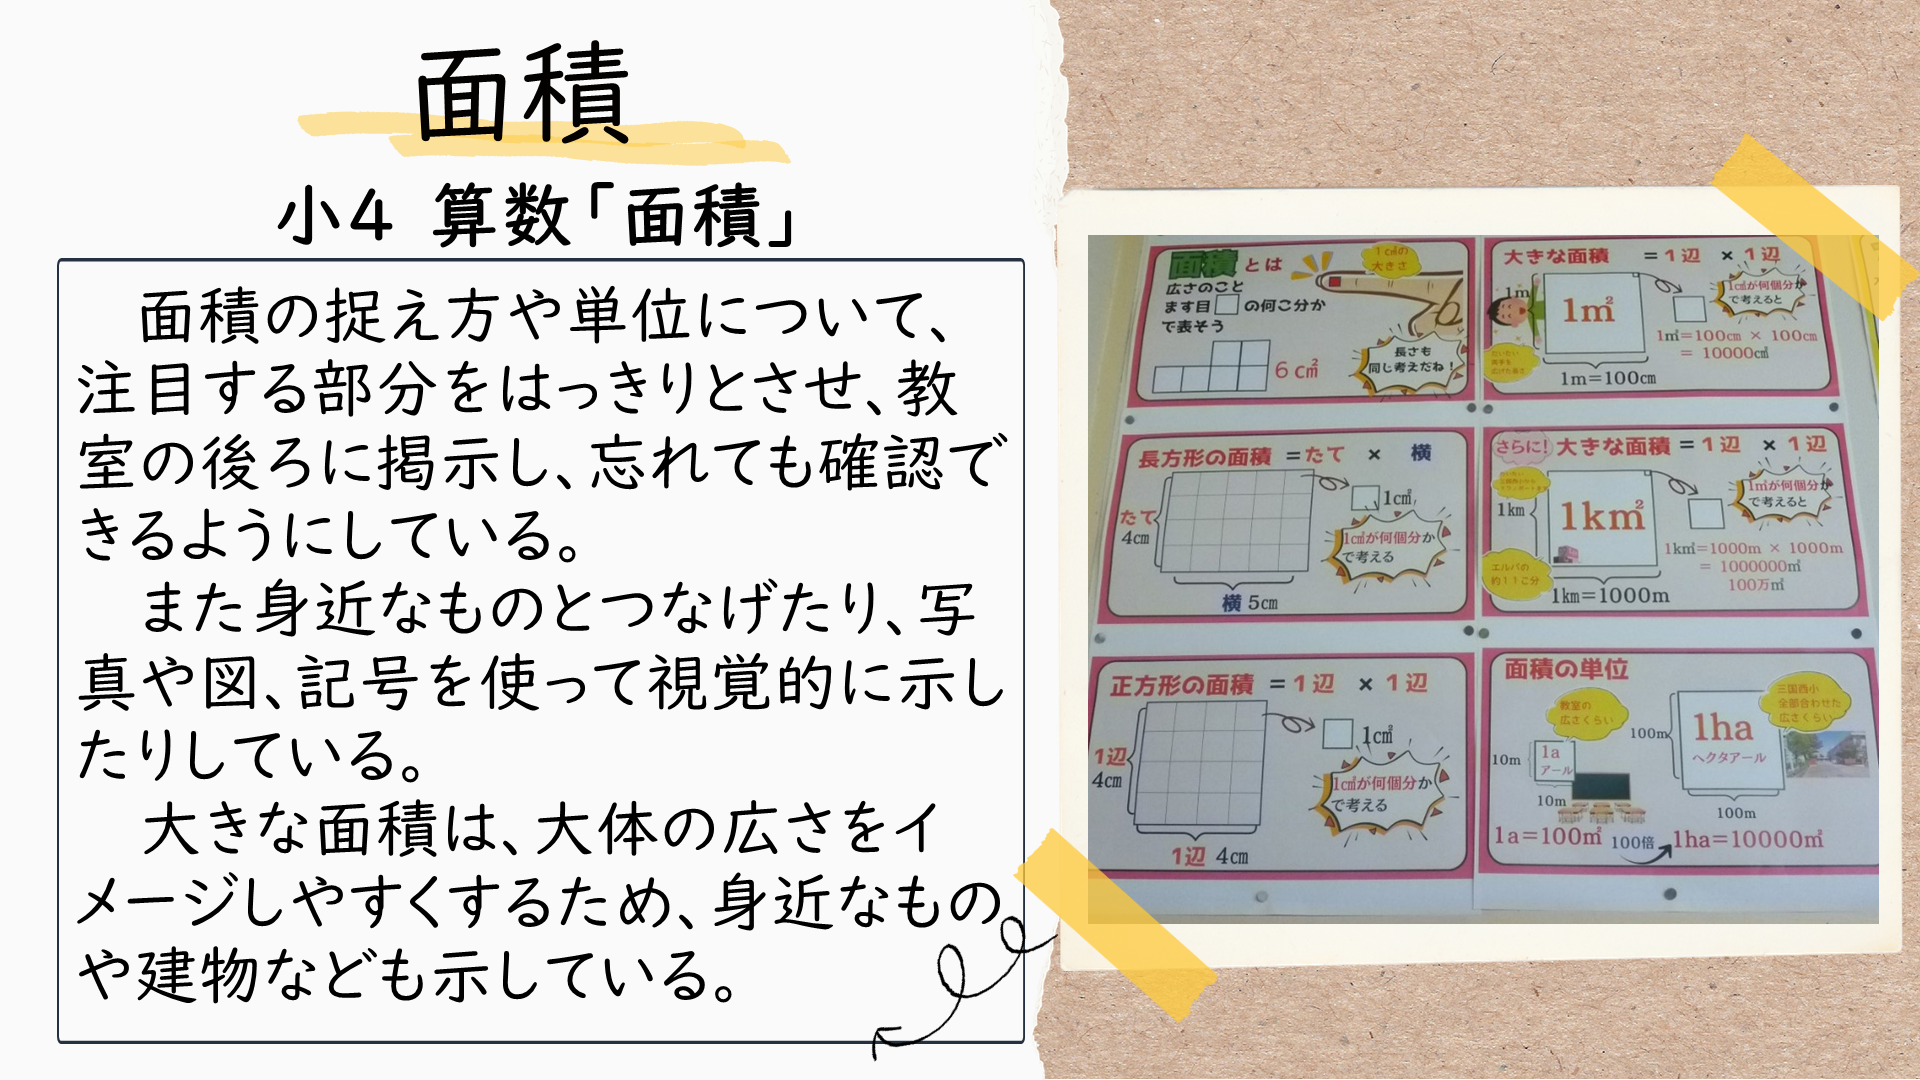 面積
小4 算数「面積」
面積の捉え方や単位について、
注目する部分をはっきりとさせ、教
室の後ろに掲示し、忘れても確認で
きるようにしている。
また身近なものとつなげたり、写
真や図、記号を使って視覚的に示し
たりしている。
大きな面積は、大体の広さをイ
メージしやすくするため、身近なもの
や建物なども示している。
面積とは
1c㎡の
大きさ
広さのこと
ます目□の何こ分か
で表そう
6c㎡
長さも
同じ考えだね!
大きな面積 =1辺 × 1辺
1m
1㎡
1c㎡が何個分か
で考えると
1㎡=100cm × 100cm
= 10000c㎡
1m=100cm
長方形の面積 =たて × 横
たて
4cm
1c㎡
1c㎡が何個分か
で考える
横 5cm
さらに!大きな面積 =1辺 × 1辺
1km
1k㎡
1㎡が何個分か
で考えると
1k㎡=1000m × 1000m
= 1000000㎡
100万㎡
エルパの
約11こ分
1km=1000m
正方形の面積 =1辺 × 1辺
1辺
4cm
1c㎡
1c㎡が何個分か
で考える
1辺 4cm
面積の単位
教室の
広さくらい
10m
1a
アール
10m
100m
1ha
ヘクタアール
三国西小
全部合わせた
広さくらい
100m
1a=100㎡ 100倍 1ha=10000㎡